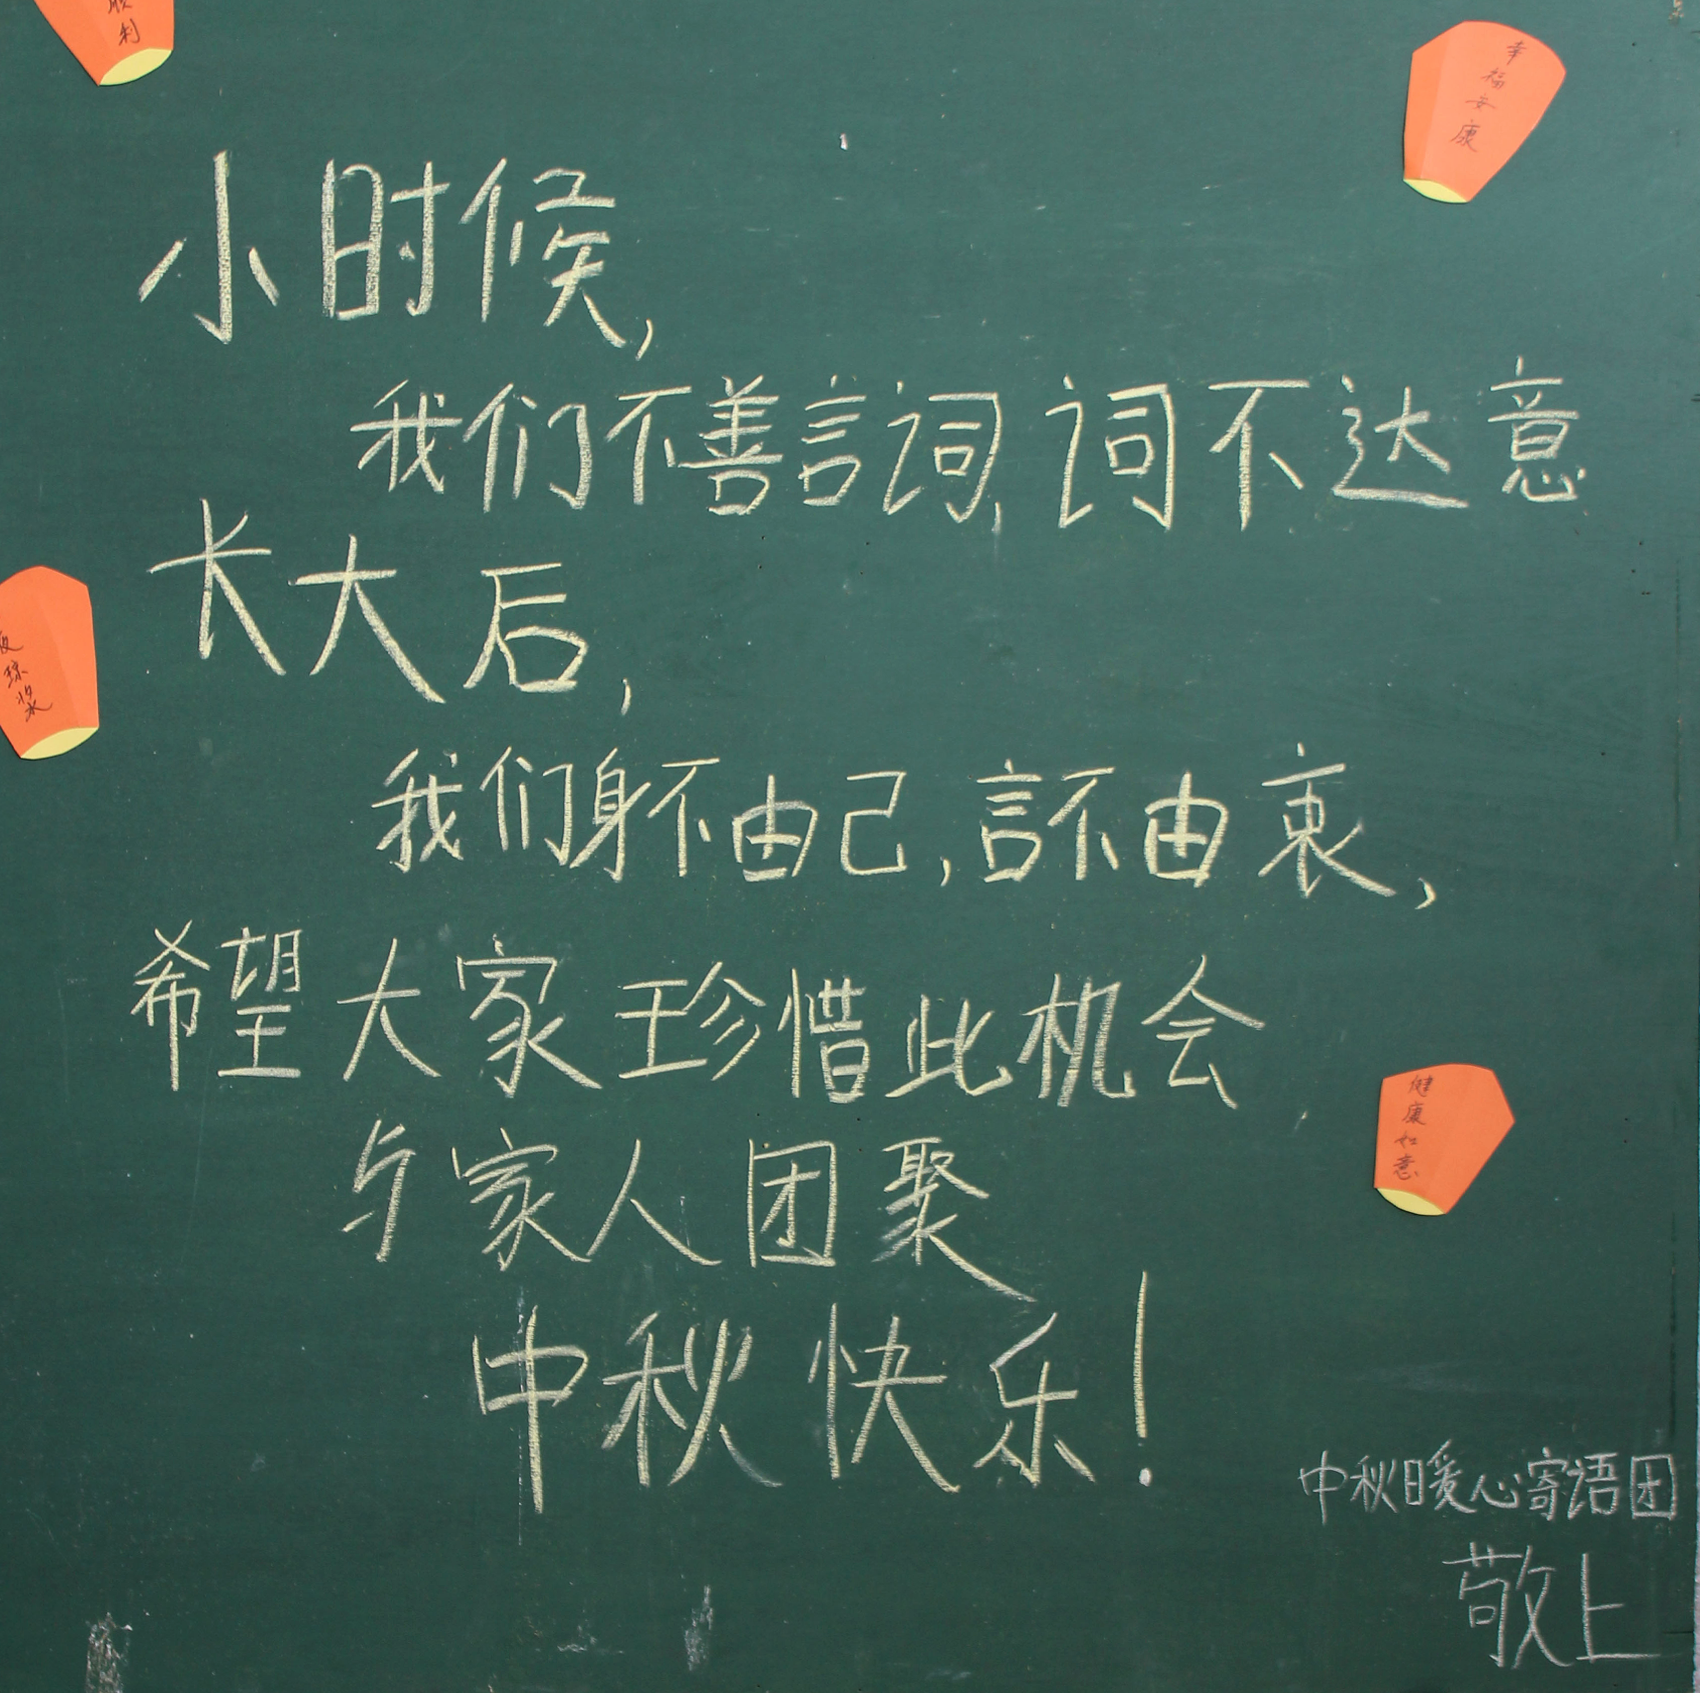 利
幸福安康
小时候,
我们不善言词,词不达意
长大后,
琼浆
我们身不由己,言不由衷,
希望大家珍惜此机会
与家人团聚
健康如意
中秋快乐!
中秋暖心寄语团
敬上